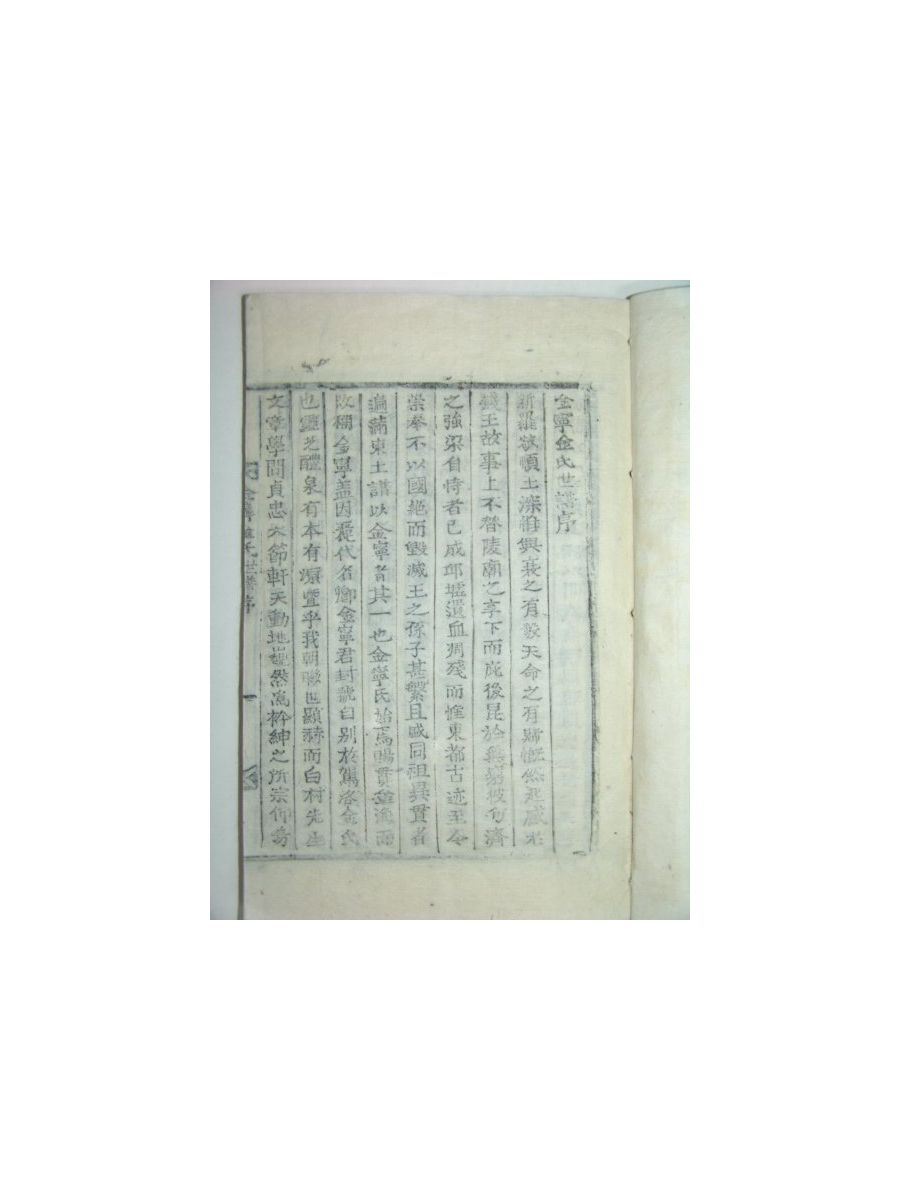 金寧金氏世譜序
新羅敬順王深惟興衰之有數天命之有歸慨然
錢王故事上不替陵廟之享下而庇後昆於無窮彼句濟
之強梁自恃者已成邱墟遺血凋殘而惟東都古迹至今
崇奉不以國絕而毀滅王之孫子甚繁且盛同祖異貫者
遍滿東土譜以金寧者其一也金寧氏始焉賜貫金海而
改稱金寧盖因麗代名卿金寧君封號自別於駕洛金氏
也靈芝醴泉有本有源曁乎我朝聯世顯赫而白村先生
文章學問貞忠大節軒天動地巍然爲搢紳之所宗仰
金寧金氏世譜序
一